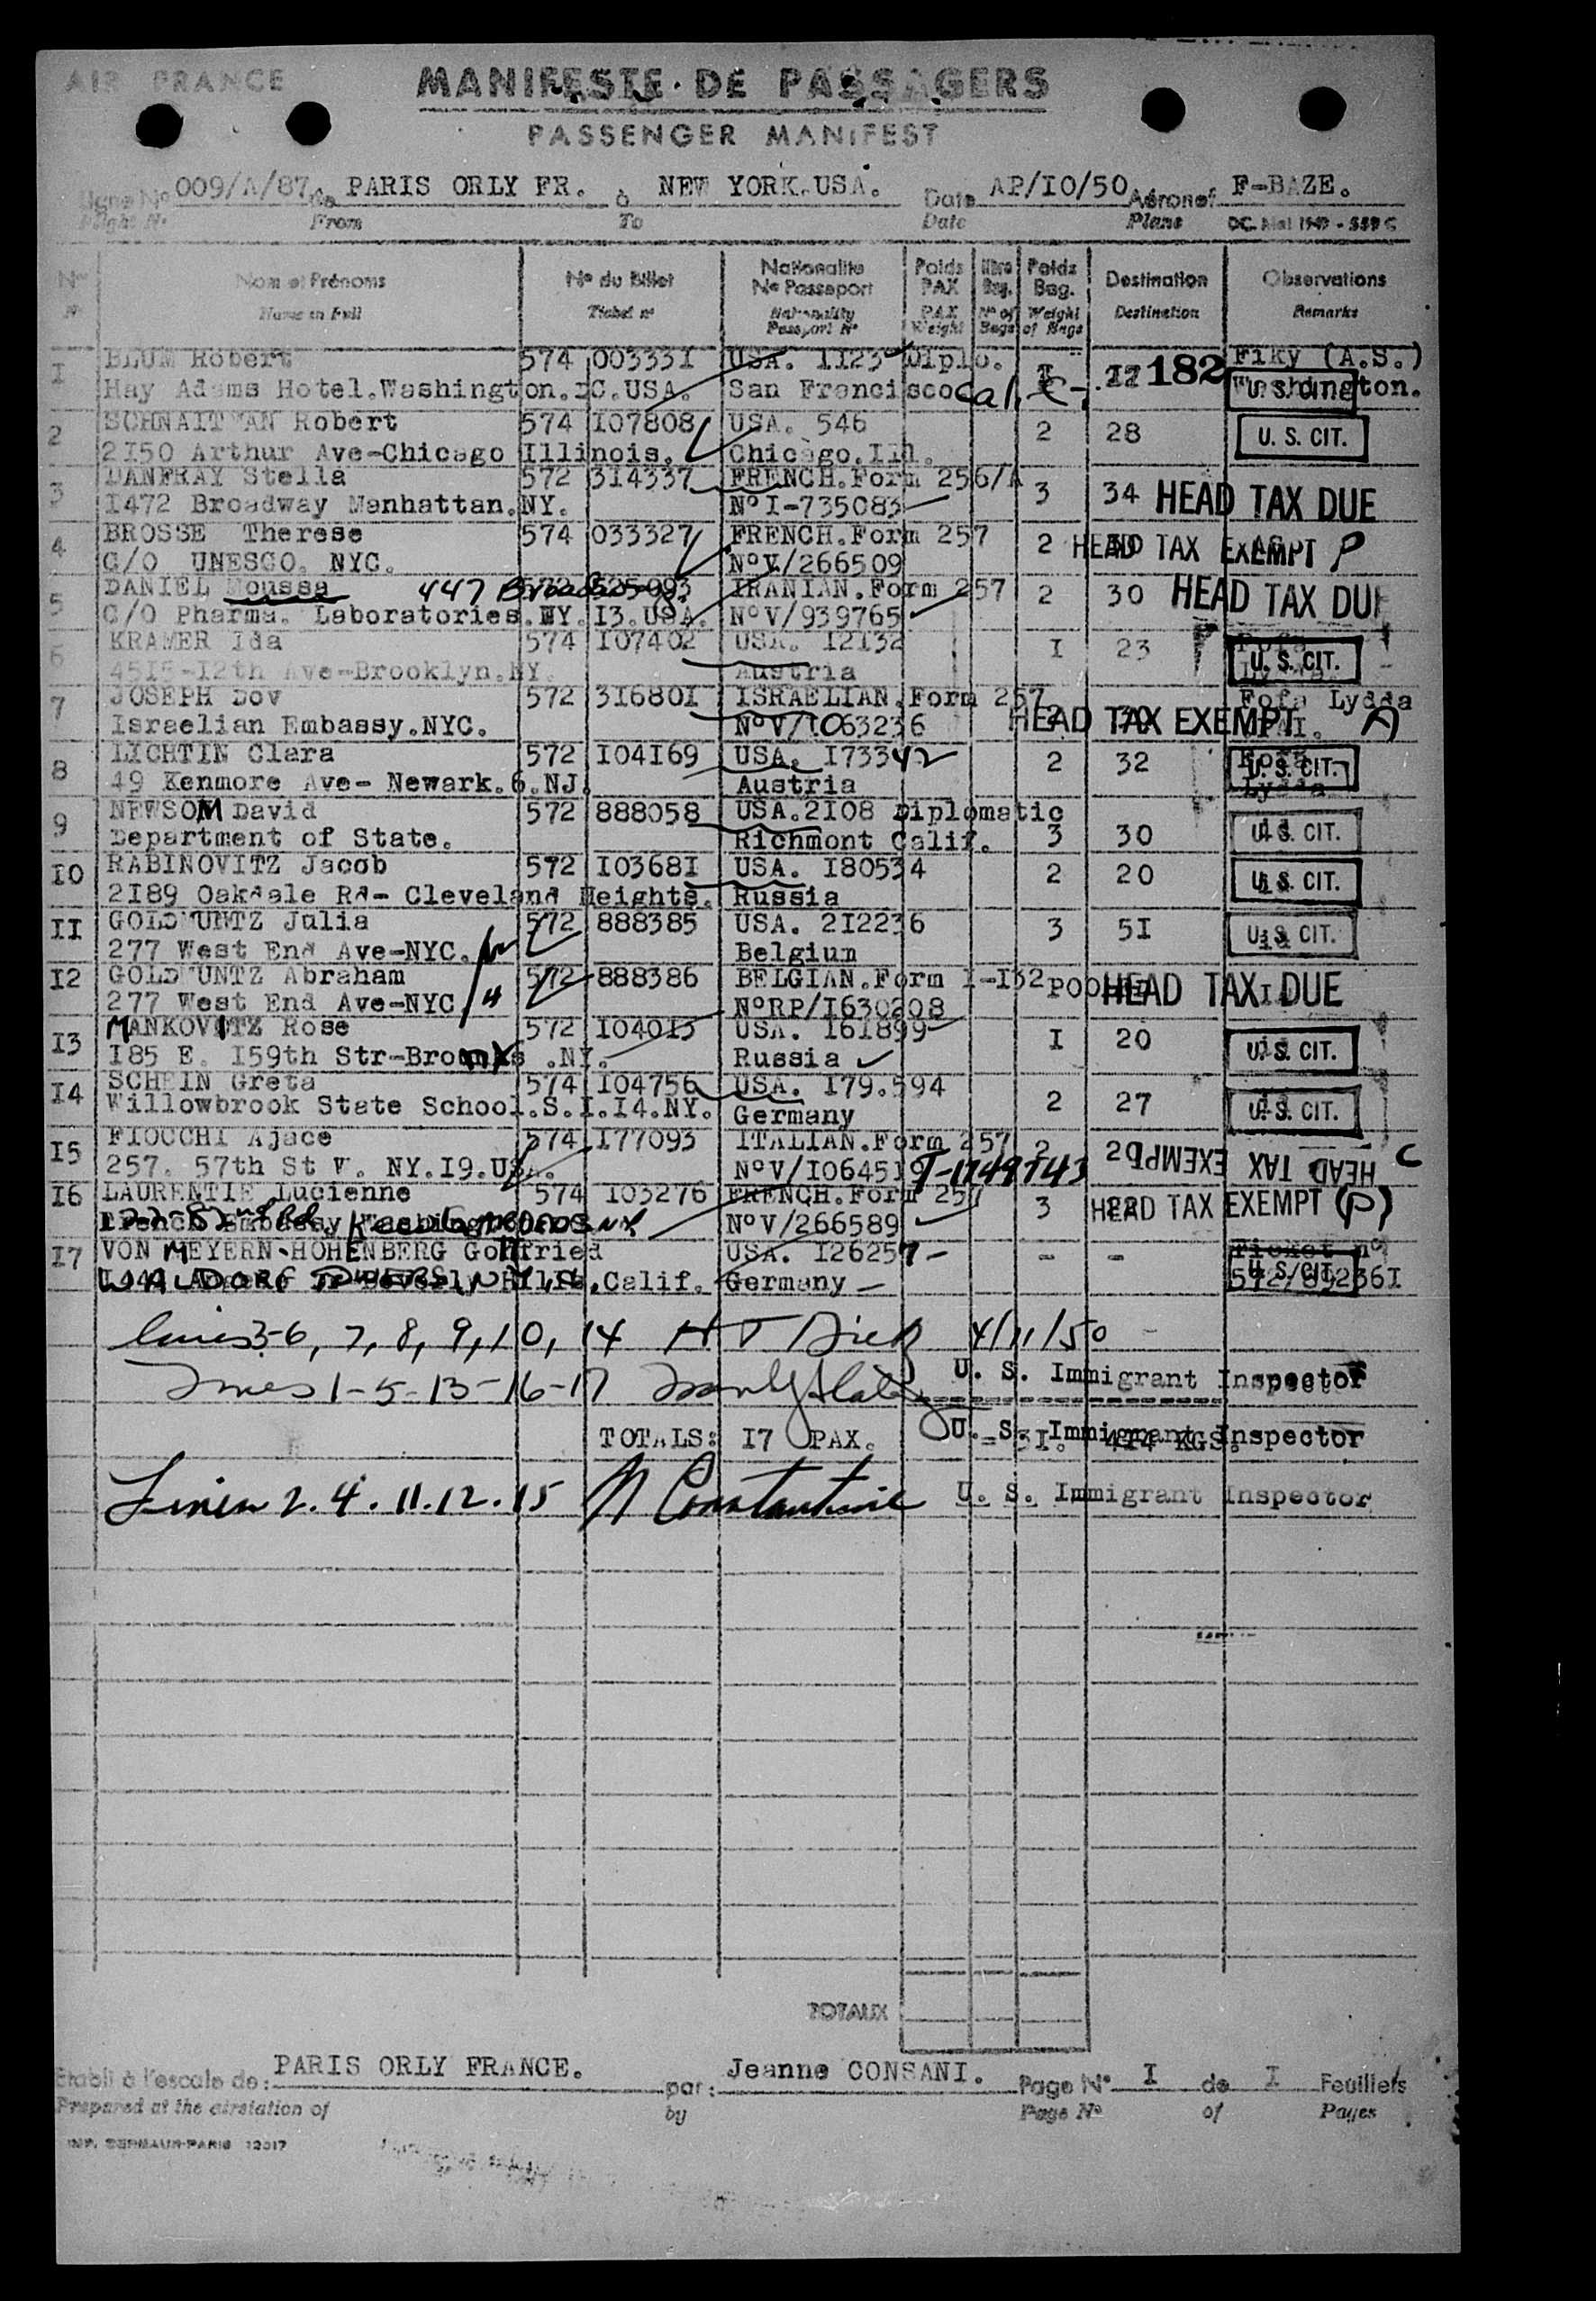 AIR FRANCE
MANIFESTE DE PASSAGERS
PASSENGER MANIFEST
Ligne No 009/A/87 de PARIS ORLY FR. à NEW YORK.USA. Date AP/IO/50 Aéronef F-BAZE.
Flight No From To Date Plane
No Nom et Prénoms No du Billet Nationalité No Passeport Poids PAX Nbre Bag. Poids Bag. Destination Observations
No Name in Full Ticket no Nationality Passport No PAX Weight No of Bags Weight of Bags Destination Remarks
I BLUM Robert 574 003331 USA. 1123 Diplo. I I2 182 Fiky (A.S.)
Hay Adams Hotel.Washington.DC.USA. San Francisco Cal. Washington. U. S. CIT.
2 SCHNAITMAN Robert 574 I07808 USA. 546 2 28 U. S. CIT.
2I50 Arthur Ave-Chicago Illinois. Chicago.Ill.
3 DANFRAY Stella 572 3I4337 FRENCH.Form 256/A 3 34 HEAD TAX DUE
I472 Broadway Manhattan.NY. NoI-735083
4 BROSSE Therese 574 033327 FRENCH.Form 257 2 HEAD TAX EXEMPT P
C/O UNESCO. NYC. NoV/266509
5 DANIEL Moussa 447 Broadway 572 IRANIAN.Form 257 2 30 HEAD TAX DUE
C/O Pharma. Laboratories.NY.I3.USA. NoV/939765
6 KRAMER Ida 574 I07402 USA. I2I32 I 23 U. S. CIT.
45I5-I2th Ave-Brooklyn.NY. Austria
7 JOSEPH Dov 572 3I680I ISRAELIAN.Form 257 2 30 Fofa Lydda
Israelian Embassy.NYC. NoV/I063236 HEAD TAX EXEMPT A
8 LICHTIN Clara 572 I04I69 USA. I73342 2 32 U. S. CIT.
49 Kenmore Ave- Newark.6.NJ. Austria Lydda
9 NEWSOM David 572 888058 USA.2I08 Diplomatic
Department of State. Richmont Calif. 3 30 U. S. CIT.
I0 RABINOVITZ Jacob 572 I0368I USA. I80534 2 20 U. S. CIT.
2I89 Oakdale Rd- Cleveland Heights. Russia
II GOLDMUNTZ Julia 572 888385 USA. 2I2236 3 5I U. S. CIT.
277 West End Ave-NYC. Belgium
I2 GOLDMUNTZ Abraham 572 888386 BELGIAN.Form I-I32 POOL HEAD TAX DUE
277 West End Ave-NYC NoRP/I630208
I3 MANKOVITZ Rose 572 I040I3 USA. I6I899 I 20 U. S. CIT.
I85 E. I59th Str-Bronx .NY. Russia
I4 SCHEIN Greta 574 I04756 USA. I79.594 2 27 U. S. CIT.
Willowbrook State School.S.I.I4.NY. Germany
I5 FIOCCHI Ajace 574 I77093 ITALIAN.Form 257 2 HEAD TAX EXEMPT C
257. 57th St W. NY.I9.USA. NoV/I0645I9 T-1749743
I6 LAURENTIE Lucienne 574 I03276 FRENCH.Form 257 3 HEAD TAX EXEMPT (P)
French Embassy Washington NoV/266589
I7 VON MEYERN-HOHENBERG Gottfried USA. I26257 - - - Ticket no
WALDORF TOWERS NY Beverly Hills.Calif. Germany U. S. CIT.
lines 3-6, 7, 8, 9, 10, 14 H T Dick 4/11/50
U. S. Immigrant Inspector
Lines 1-5-13-16-17
TOTALS: I7 PAX. = 3I. 4I4 KGS. U. S. Immigrant Inspector
Lines 2. 4. 11. 12. 15 N Constantine U. S. Immigrant Inspector
TOTAUX
Etabli à l'escale de: PARIS ORLY FRANCE. par: Jeanne CONSANI. Page No I de I Feuillets
Prepared at the airstation of by Page No of Pages